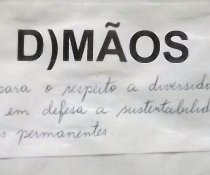 D)MÃOS
para o respeito a diversida
em defesa a sustentabilid
s permanentes.